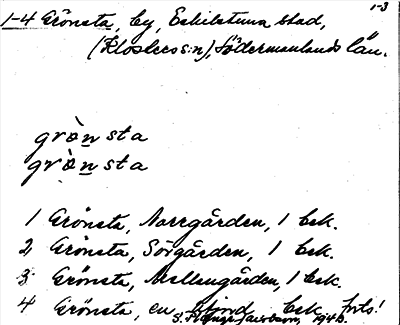 1-3
1-4 Grönsta, by, Eskilstuna stad,
(Klosters s:n), Södermanlands län.
grö̀n sta
grö̀n sta
1 Grönsta, Norrgården, 1 bek.
2 Grönsta, Sörgården, 1 bek.
3 Grönsta, Mellangården, 1 bek.
4 Grönsta, en bek. forts!
S. 1940.